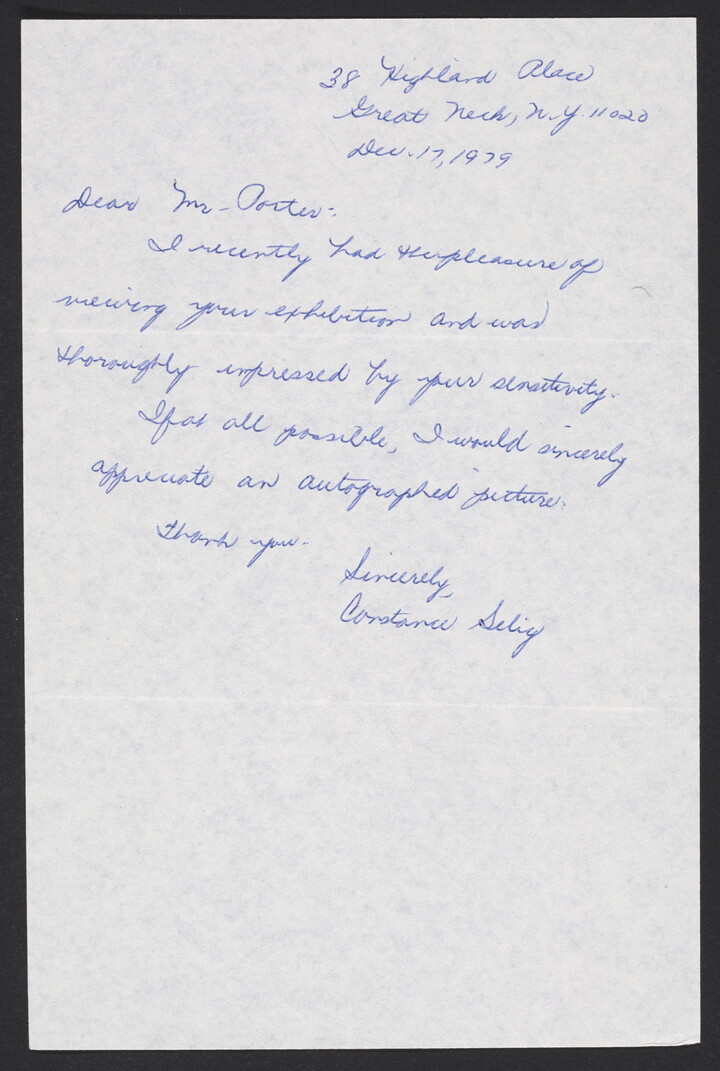 38 Highland Place
Great Neck, N.Y. 11020
Dec. 17, 1979
Dear Mr. Porter:
I recently had the pleasure of
viewing your exhibition and was
thoroughly impressed by your sensitivity.
If at all possible, I would sincerely
appreciate an autographed picture.
Thank you.
Sincerely,
Constance Selig